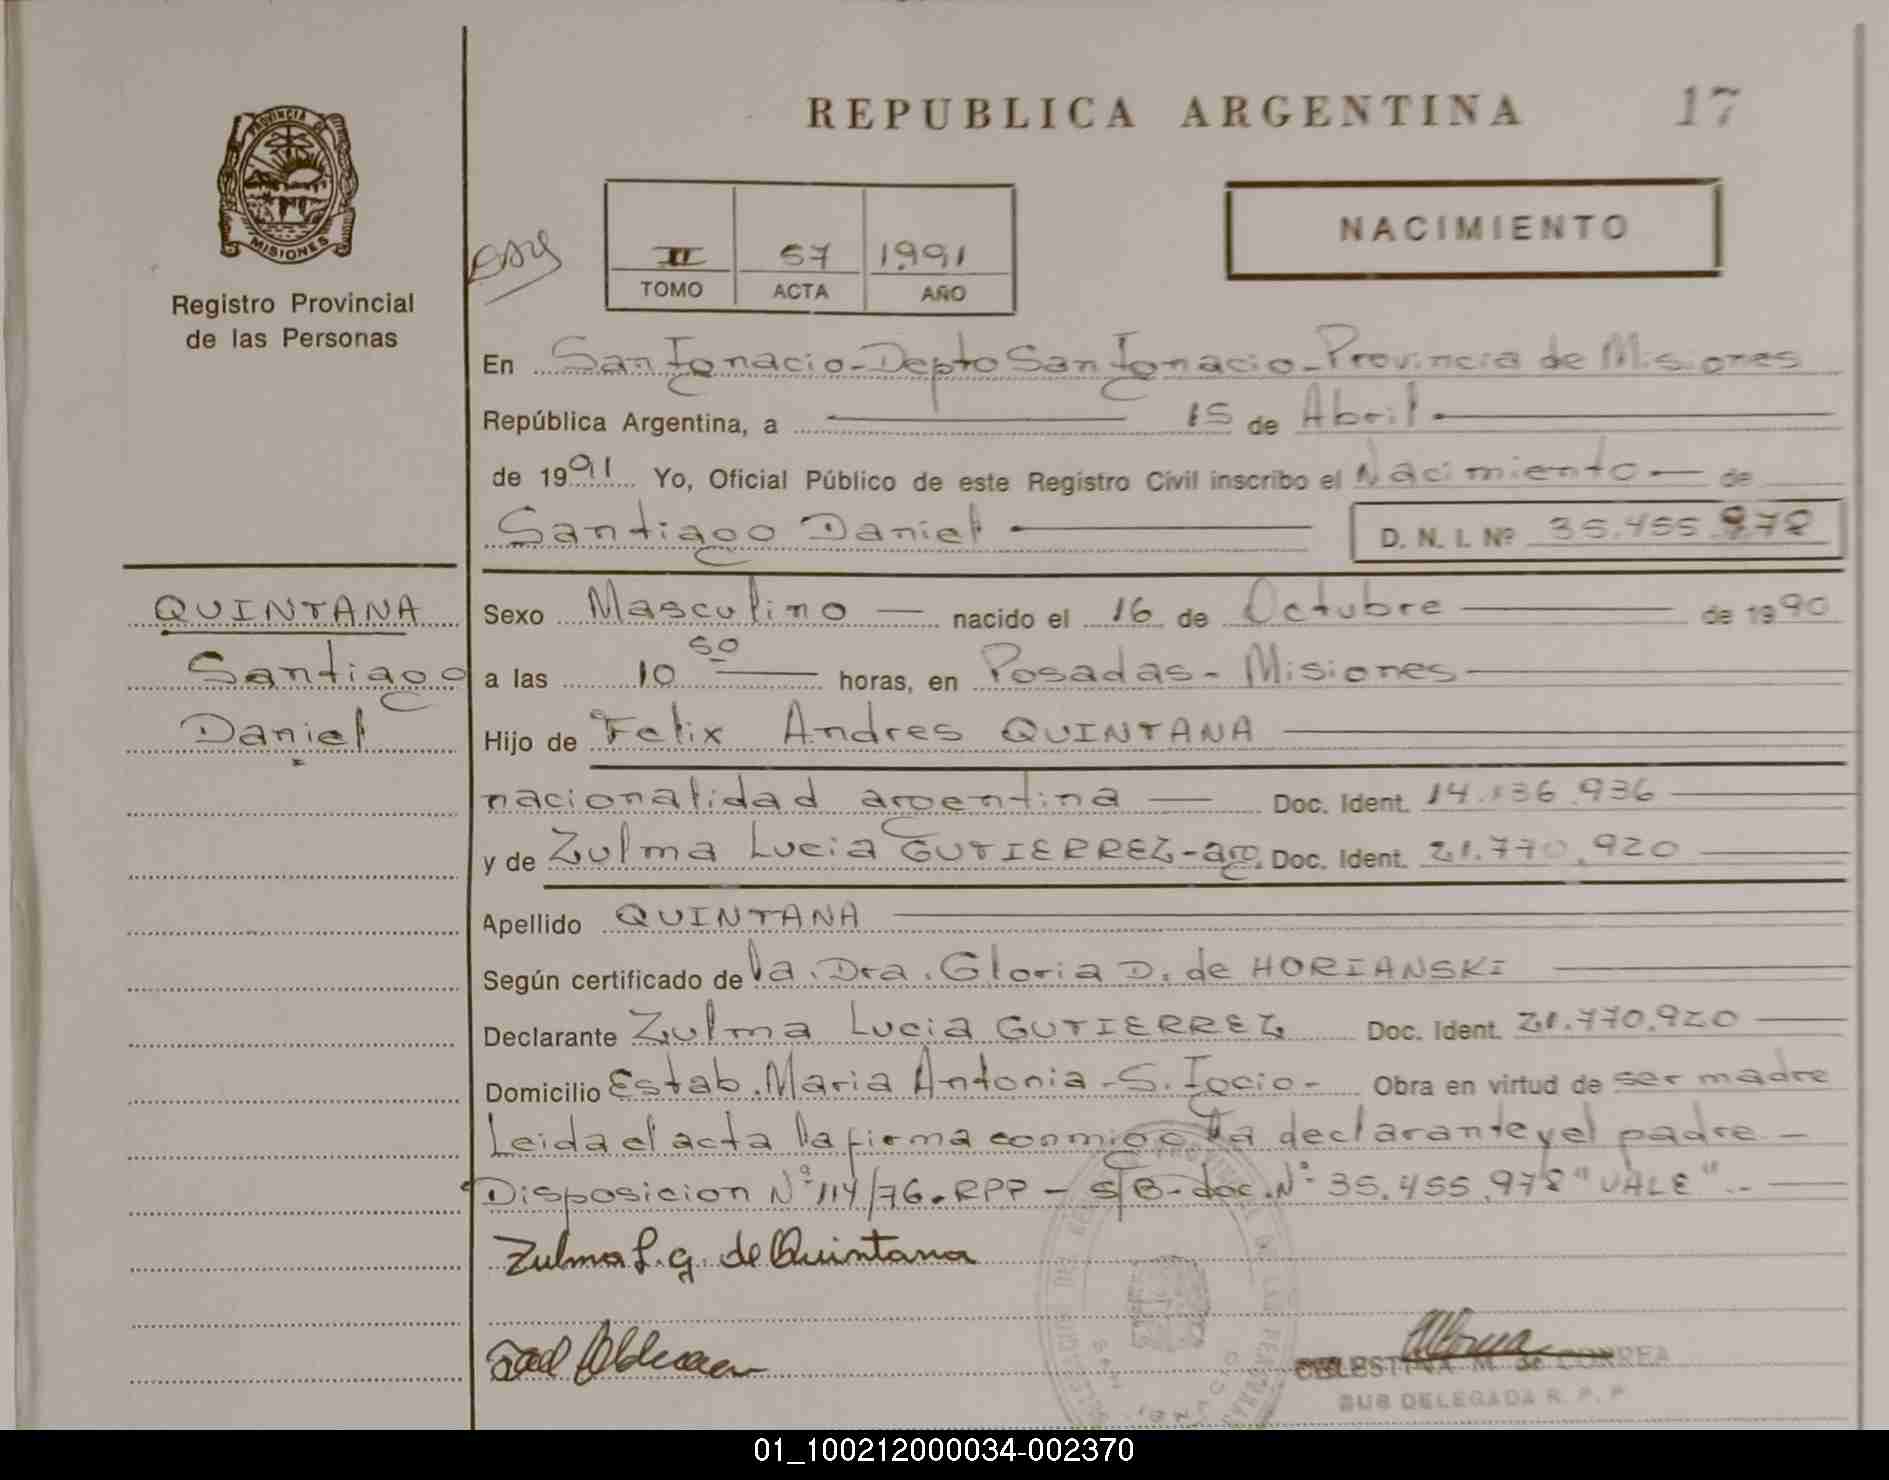 REPUBLICA ARGENTINA 17
PROVINCIA DE
MISIONES
Registro Provincial
de las Personas
II 57 1991
TOMO ACTA AÑO
NACIMIENTO
En San Ignacio - Depto San Ignacio - Provincia de Misiones
República Argentina, a 15 de Abril
de 1991 Yo, Oficial Público de este Registro Civil inscribo el Nacimiento de
Santiago Daniel D. N. I. Nº 35.455.978
QUINTANA
Santiago
Daniel
Sexo Masculino nacido el 16 de Octubre de 1990
a las 10 50 horas, en Posadas - Misiones
Hijo de Felix Andres QUINTANA
nacionalidad argentina Doc. Ident. 14.136.936
y de Zulma Lucia GUTIERREZ - arg. Doc. Ident. 21.770.920
Apellido QUINTANA
Según certificado de la Dra. Gloria D. de HORIANSKI
Declarante Zulma Lucia GUTIERREZ Doc. Ident. 21.770.920
Domicilio Estab. Maria Antonia - S. Igcio - Obra en virtud de ser madre
Leida el acta la firma conmigo la declarante y el padre -
Disposicion Nº 114/76. RPP - S/B - doc. Nº 35.455.978 "VALE" . -
Zulma L. G. de Quintana
CELESTINA M. de CORREA
SUB DELEGADA R. P. P
01_100212000034-002370